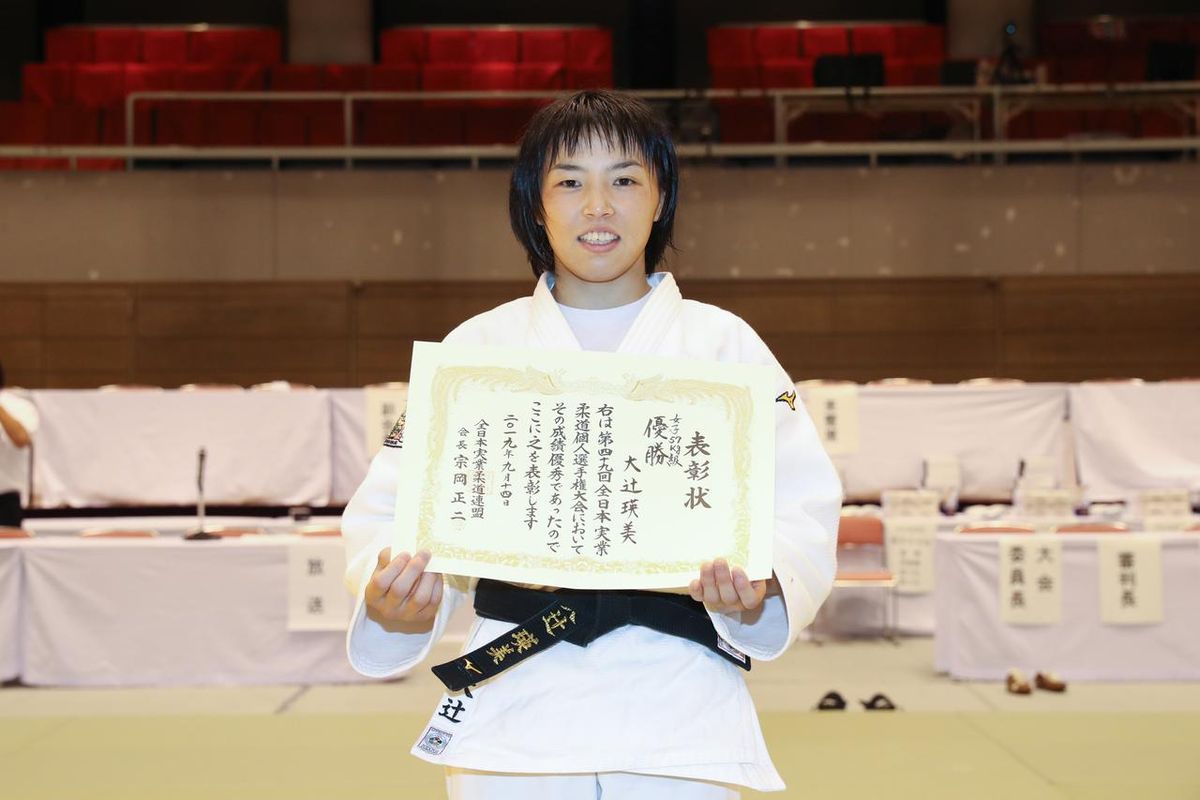 表彰状
女子57kg級
優勝
大辻瑛美
右は第四十九回全日本実業
柔道個人選手権大会において
その成績優秀であったので
ここに之を表彰します
二〇一九年九月十四日
全日本実業柔道連盟
会長 宗岡正二
辻 瑛美
大辻
放送
大会
委員長
審判長